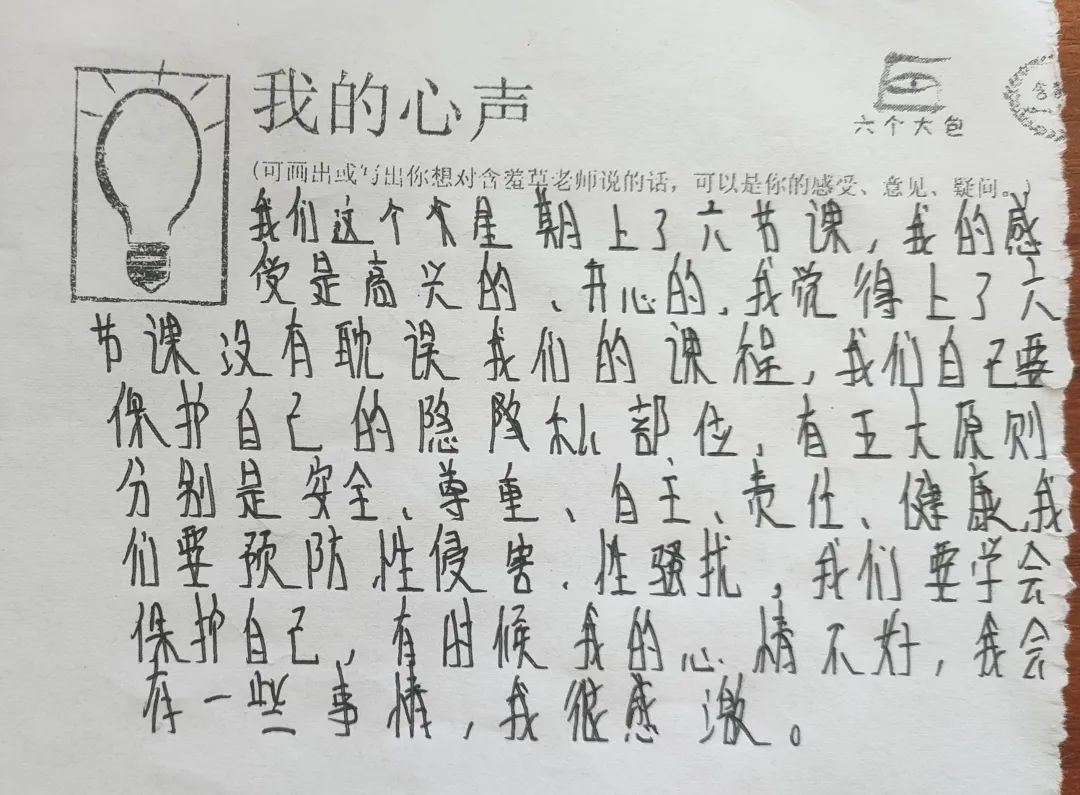 我的心声
六个大包
含
(可画出或写出你想对含羞草老师说的话，可以是你的感受、意见、疑问。)
我们这个个星期上了六节课，我的感
受是高兴的、开心的，我觉得上了六
节课没有耽误我们的课程，我们自己要
保护自己的隐私部位，有五大原则
分别是安全、尊重、自主、责任、健康，我
们要预防性侵害、性骚扰，我们要学会
保护自己，有时候我的心情不好，我会
有一些事情，我很感激。